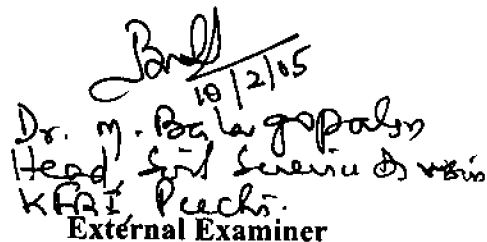 10/2/05
Dr. M. Balagopalan
Head, Soil Science Division
KFRI, Peechi.
External Examiner